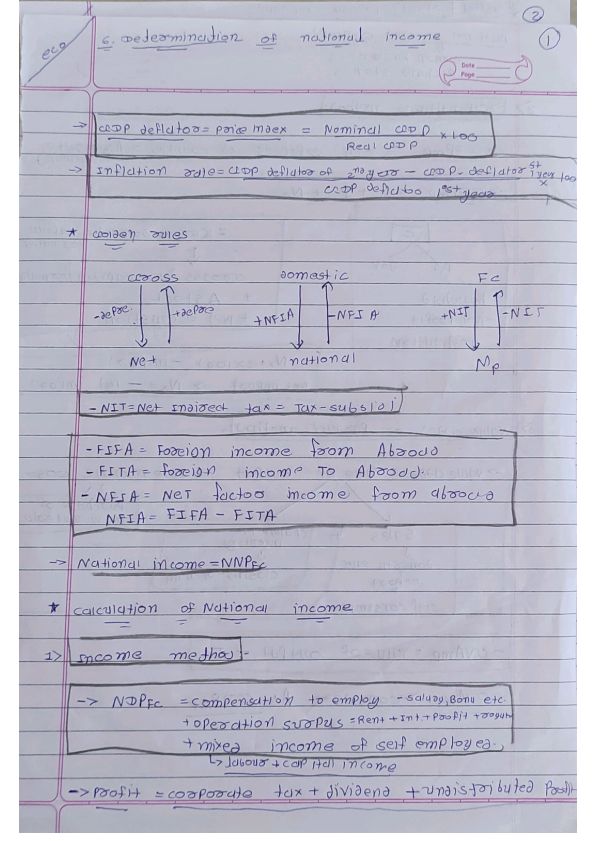 ②
①
eco
6. Determination of national income
Date
Page
→ GDP deflator = Price index = Nominal GDP / Real GDP × 100
→ Inflation rate = GDP deflator of 2nd year – GDP deflator 1st year × 100
GDP deflator 1st year
* Golden rules
Gross Domestic FC
-Depre. +Depre +NFIA -NFIA +NIT -NIT
Net National Mp
- NIT = Net Indirect tax = Tax - subsidi
- FIFA = Foreign income from Abroad
- FITA = foreign income To Abroad.
- NFIA = Net factor income from abroad
NFIA = FIFA - FITA
→ National income = NNPFC
* Calculation of National income
1> Income method :-
→ NDPFC = compensation to employ - salary, Bonu etc.
+ operation surpus = Rent + Int. + Profit +
+ mixed income of self employee,
↳ labour + capital income
→ Profit = corporate tax + dividend + undistributed Profit